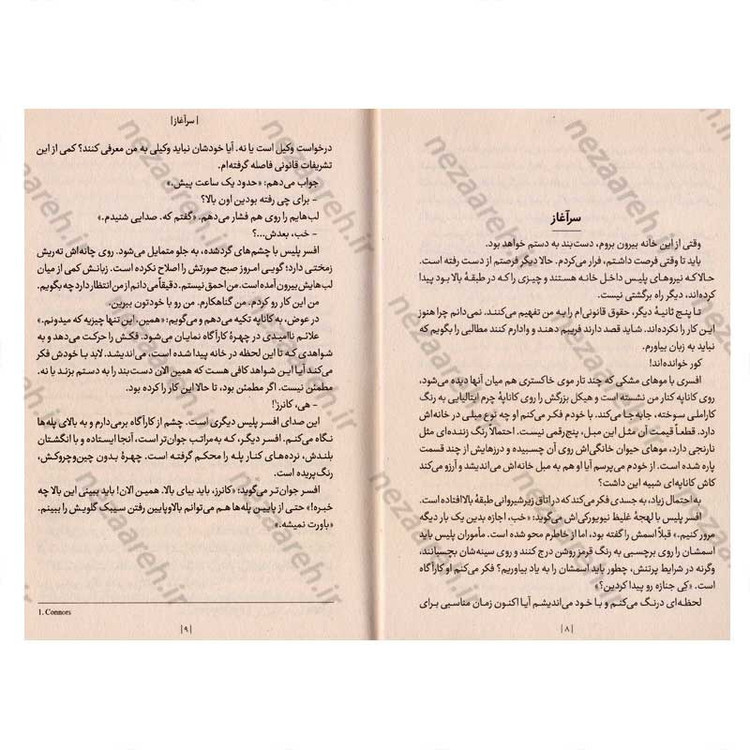 سرآغاز
وقتی از این خانه بیرون بروم، دست‌بند به دستم خواهد بود.
باید تا وقتی فرصت داشتم، فرار می‌کردم. حالا دیگر فرصتم از دست رفته است.
حالا که نیروهای پلیس داخل خانه هستند و چیزی را که در طبقهٔ بالا بود پیدا
کرده‌اند، دیگر راه برگشتی نیست.
تا پنج ثانیهٔ دیگر، حقوق قانونی‌ام را به من تفهیم می‌کنند. نمی‌دانم چرا هنوز
این کار را نکرده‌اند. شاید قصد دارند فریبم دهند و وادارم کنند مطالبی را بگویم که
نباید به زبان بیاورم.
کور خوانده‌اند!
افسری با موهای مشکی که چند تار موی خاکستری هم میان آنها دیده می‌شود،
روی کاناپه کنار من نشسته است و هیکل بزرگش را روی کاناپهٔ چرم ایتالیایی به رنگ
کاراملی سوخته، جابه‌جا می‌کند. با خودم فکر می‌کنم او چه نوع مبلی در خانه‌اش
دارد. قطعاً قیمت آن مثل این مبل، پنج‌رقمی نیست. احتمالاً رنگ زننده‌ای مثل
نارنجی دارد، موهای حیوان خانگی‌اش روی آن چسبیده و درزهایش از چند قسمت
پاره شده است. از خودم می‌پرسم آیا او هم به مبل خانه‌اش می‌اندیشد و آرزو می‌کند
کاش کاناپه‌ای شبیه این داشت؟
به احتمال زیاد، به جسدی فکر می‌کند که در اتاق زیرشیروانی طبقهٔ بالا افتاده است.
افسر پلیس با لهجهٔ غلیظ نیویورکی‌اش می‌گوید: «خب، اجازه بدین یک بار دیگه
مرور کنیم.» قبلاً اسمش را گفته بود، اما از خاطرم محو شده است. مأموران پلیس باید
اسمشان را روی برچسبی به رنگ قرمز روشن درج کنند و روی سینه‌شان بچسبانند،
وگرنه در شرایط پرتنش، چطور باید اسمشان را به یاد بیاوریم؟ فکر می‌کنم او کارآگاه
است. «کِی جنازه رو پیدا کردین؟»
لحظه‌ای درنگ می‌کنم و با خود می‌اندیشم آیا اکنون زمان مناسبی برای
|۸|
|سرآغاز|
درخواست وکیل است یا نه. آیا خودشان نباید وکیلی به من معرفی کنند؟ کمی از این
تشریفات قانونی فاصله گرفته‌ام.
جواب می‌دهم: «حدود یک ساعت پیش.»
- برای چی رفته بودین اون بالا؟
لب‌هایم را روی هم فشار می‌دهم. «گفتم که. صدایی شنیدم.»
- خب، بعدش...؟
افسر پلیس با چشم‌های گردشده، به جلو متمایل می‌شود. روی چانه‌اش ته‌ریش
زمختی دارد؛ گویی امروز صبح صورتش را اصلاح نکرده است. زبانش کمی از میان
لب‌هایش بیرون آمده است. من احمق نیستم. دقیقاً می‌دانم از من انتظار دارد چه بگویم.
من این کار رو کردم. من گناهکارم. من رو با خودتون ببرین.
در عوض، به کاناپه تکیه می‌دهم و می‌گویم: «همین. این تنها چیزیه که میدونم.»
علائم ناامیدی در چهرهٔ کارآگاه نمایان می‌شود. فکش را حرکت می‌دهد و به
شواهدی که تا این لحظه در خانه پیدا شده است، می‌اندیشد. لابد با خودش فکر
می‌کند آیا این شواهد کافی هست که همین الان دست‌بند را به دستم بزند یا نه.
مطمئن نیست. اگر مطمئن بود، تا حالا این کار را کرده بود.
- هی، کانرز!
این صدای افسر پلیس دیگری است. چشم از کارآگاه برمی‌دارم و به بالای پله‌ها
نگاه می‌کنم. افسر دیگر، که به‌مراتب جوان‌تر است، آنجا ایستاده و با انگشتان
بلندش، نرده‌های کنار پله را محکم گرفته است. چهرهٔ بدون چین‌وچروکش،
رنگ‌پریده است.
افسر جوان‌تر می‌گوید: «کانرز، باید بیای بالا. همین الان! باید ببینی این بالا چه
خبره!» حتی از پایین پله‌ها هم می‌توانم بالاوپایین رفتن سیبک گلویش را ببینم.
«باورت نمیشه.»
1. Connors
|۹|
nezaareh.ir